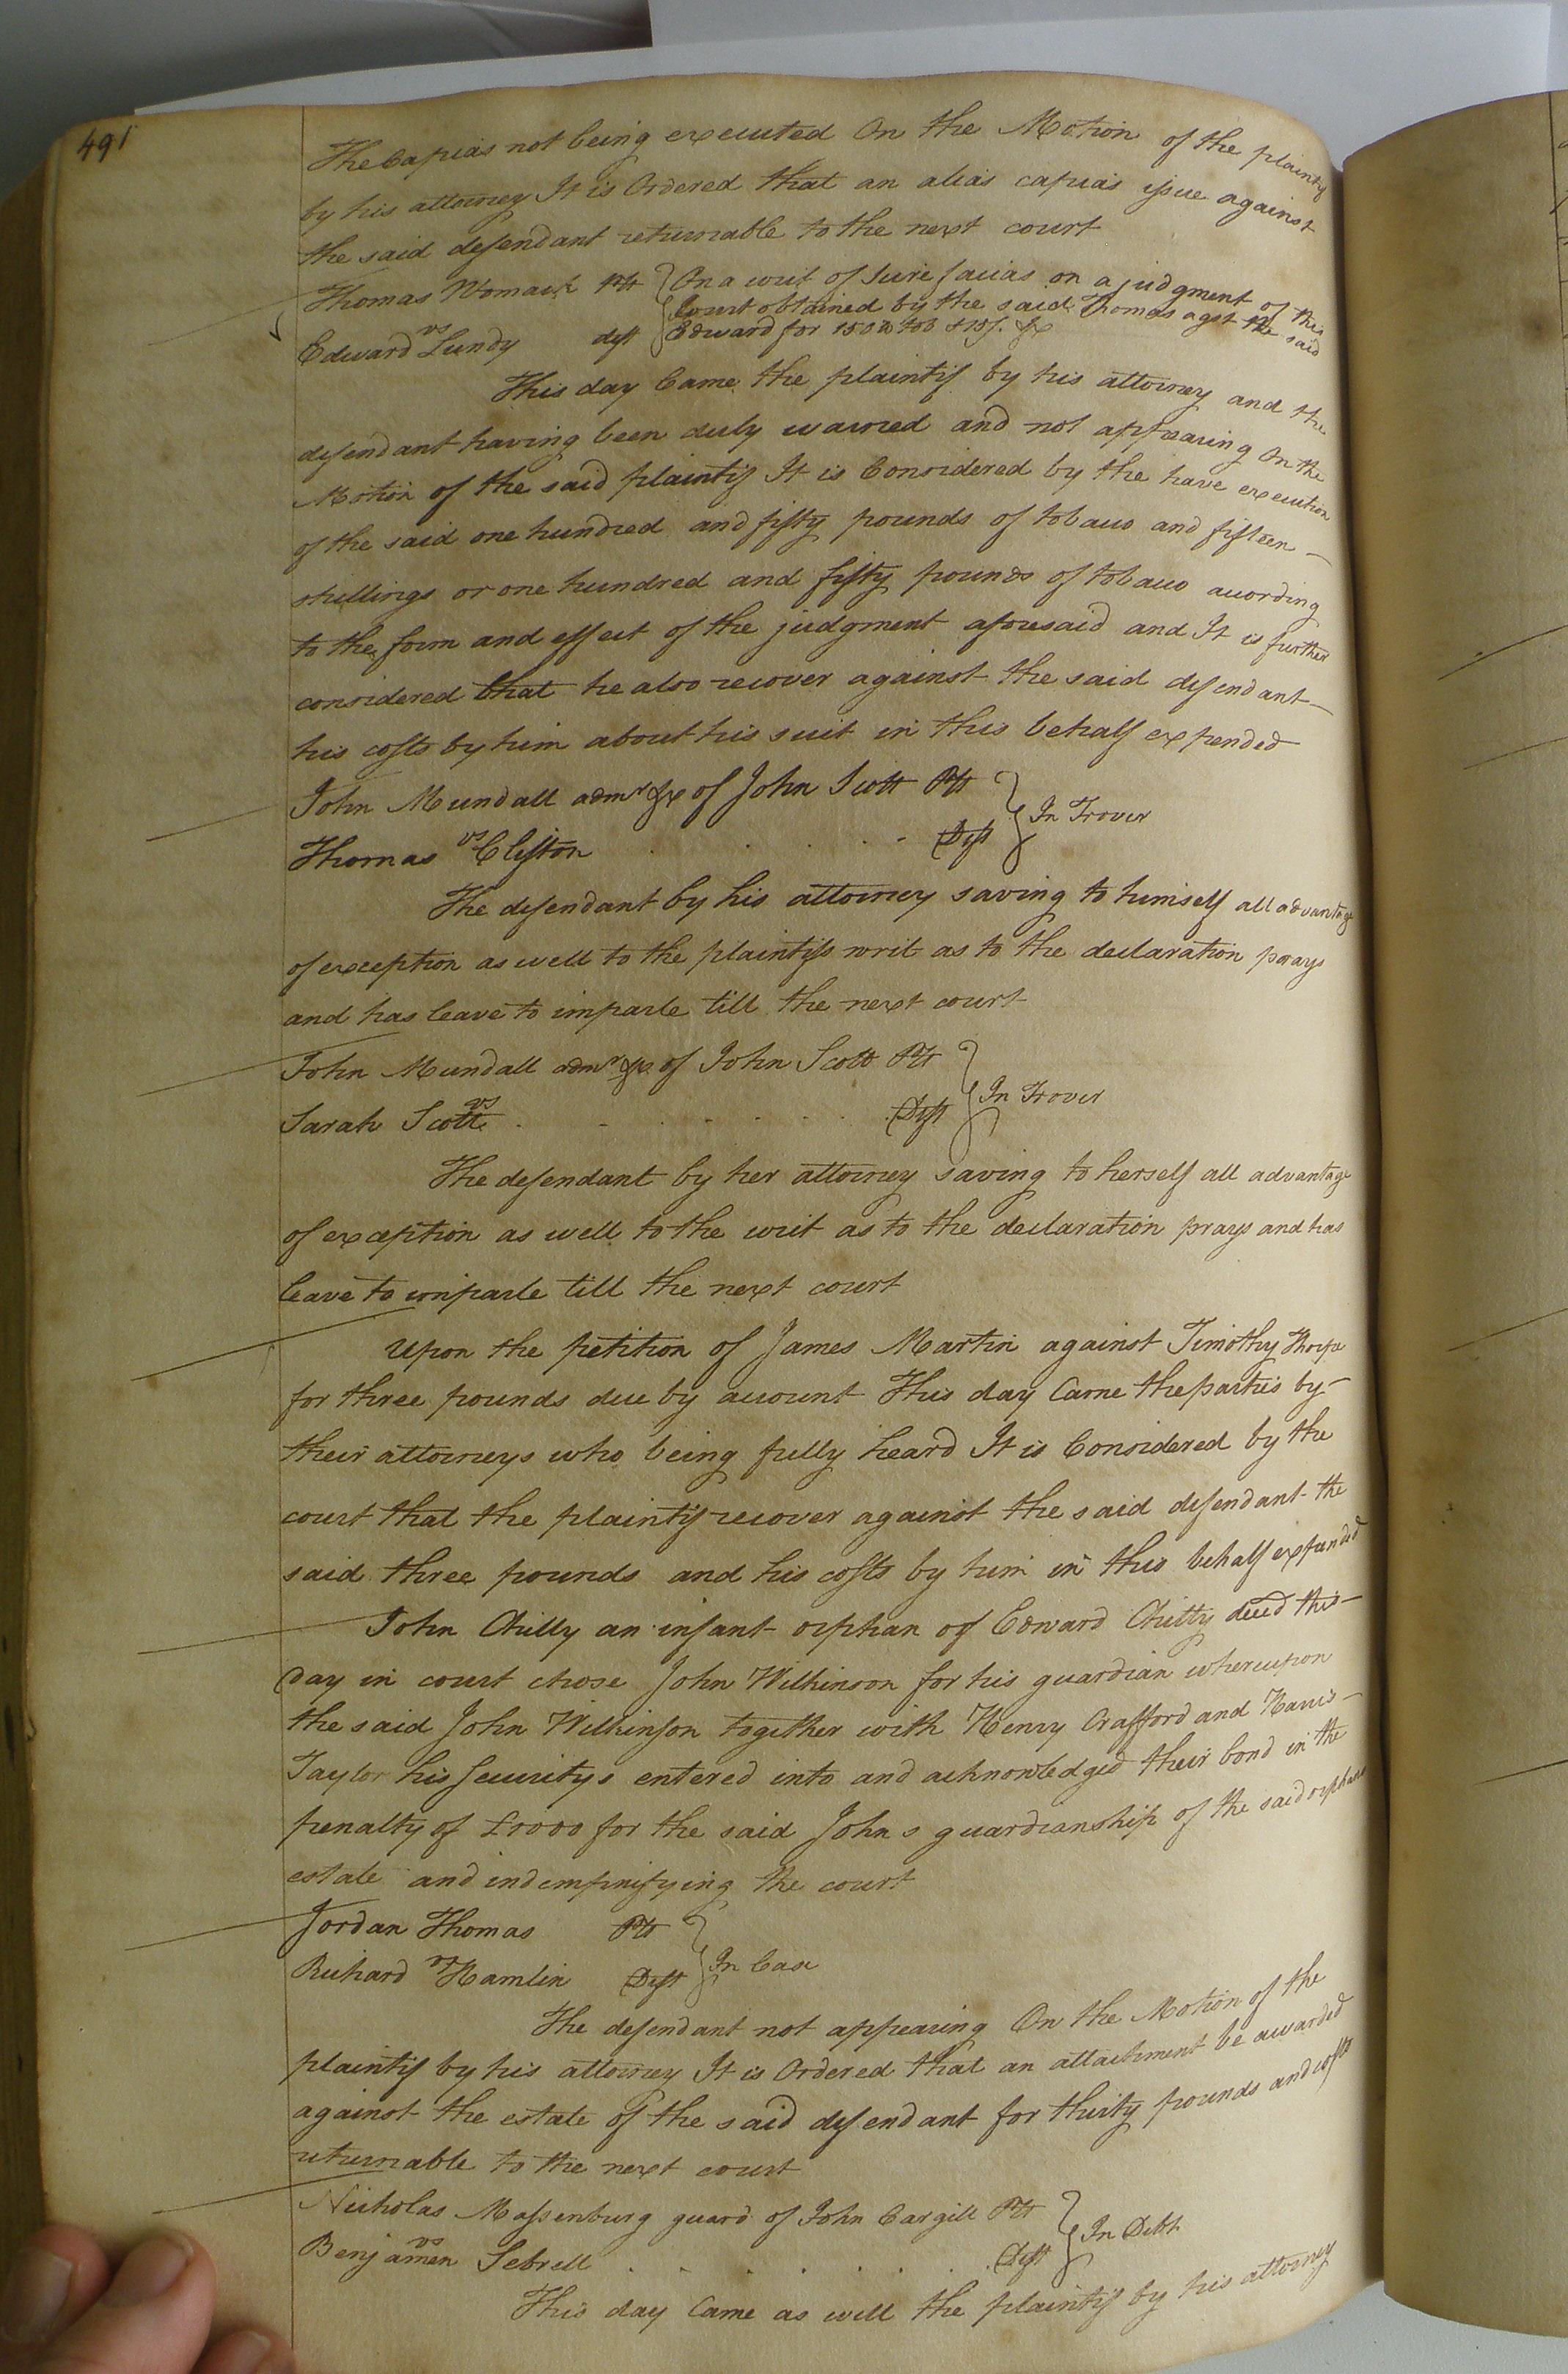 491
The Capias not being executed On the Motion of the plaintif
by his attorney It is Ordered that an alias capias issue against
the said defendant returnable to the next court
Thomas Womack Plt On a writ of Scire facias on a judgment of this
Court obtained by the said Thomas agst the said
vs
Edward Lundy deft Edward for 150 lb tob & 15/. &c
This day Came the plaintif by his attorney and the
defendant having been duly warned and not appearing On the
Motion of the said plaintif It is Considered by the have execution
of the said one hundred and fifty pounds of tobacco and fifteen
shillings or one hundred and fifty pounds of tobacco according
to the form and effect of the judgment aforesaid and It is further
considered that he also recover against the said defendant
his costs by him about his suit in this behalf expended
John Mundall admr &c of John Scott Plt
In Trover
vs
Thomas Clifton Deft
The defendant by his attorney saving to himself all advantage
of exception as well to the plaintifs writ as to the declaration prays
and has leave to imparle till the next court
John Mundall admr &c of John Scott Plt
In Trover
vs
Sarah Scott Deft
The defendant by her attorney saving to herself all advantage
of exception as well to the writ as to the declaration prays and has
leave to imparle till the next court
Upon the petition of James Martin against Timothy Thorpe
for three pounds due by account This day Came the parties by
their attorneys who being fully heard It is Considered by the
court that the plaintif recover against the said defendant the
said three pounds and his costs by him in this behalf expended
John Chitty an infant orphan of Edward Chitty deced this
day in court chose John Wilkinson for his guardian whereupon
the said John Wilkinson together with Henry Crafford and Harris
Taylor his securitys entered into and acknowledged their bond in the
penalty of £1000 for the said Johns guardianship of the said orphans
estate and indempnifying the court
Jordan Thomas Plt
In Case
vs
Richard Hamlin Deft
The defendant not appearing On the Motion of the
plaintif by his attorney It is Ordered that an attachment be awarded
against the estate of the said defendant for thirty pounds and costs
returnable to the next court
Nicholas Massenburg guard of John Cargill Plt
In Debt
vs
Benjamen Sebrell Deft
This day Came as well the plaintif by his attorney